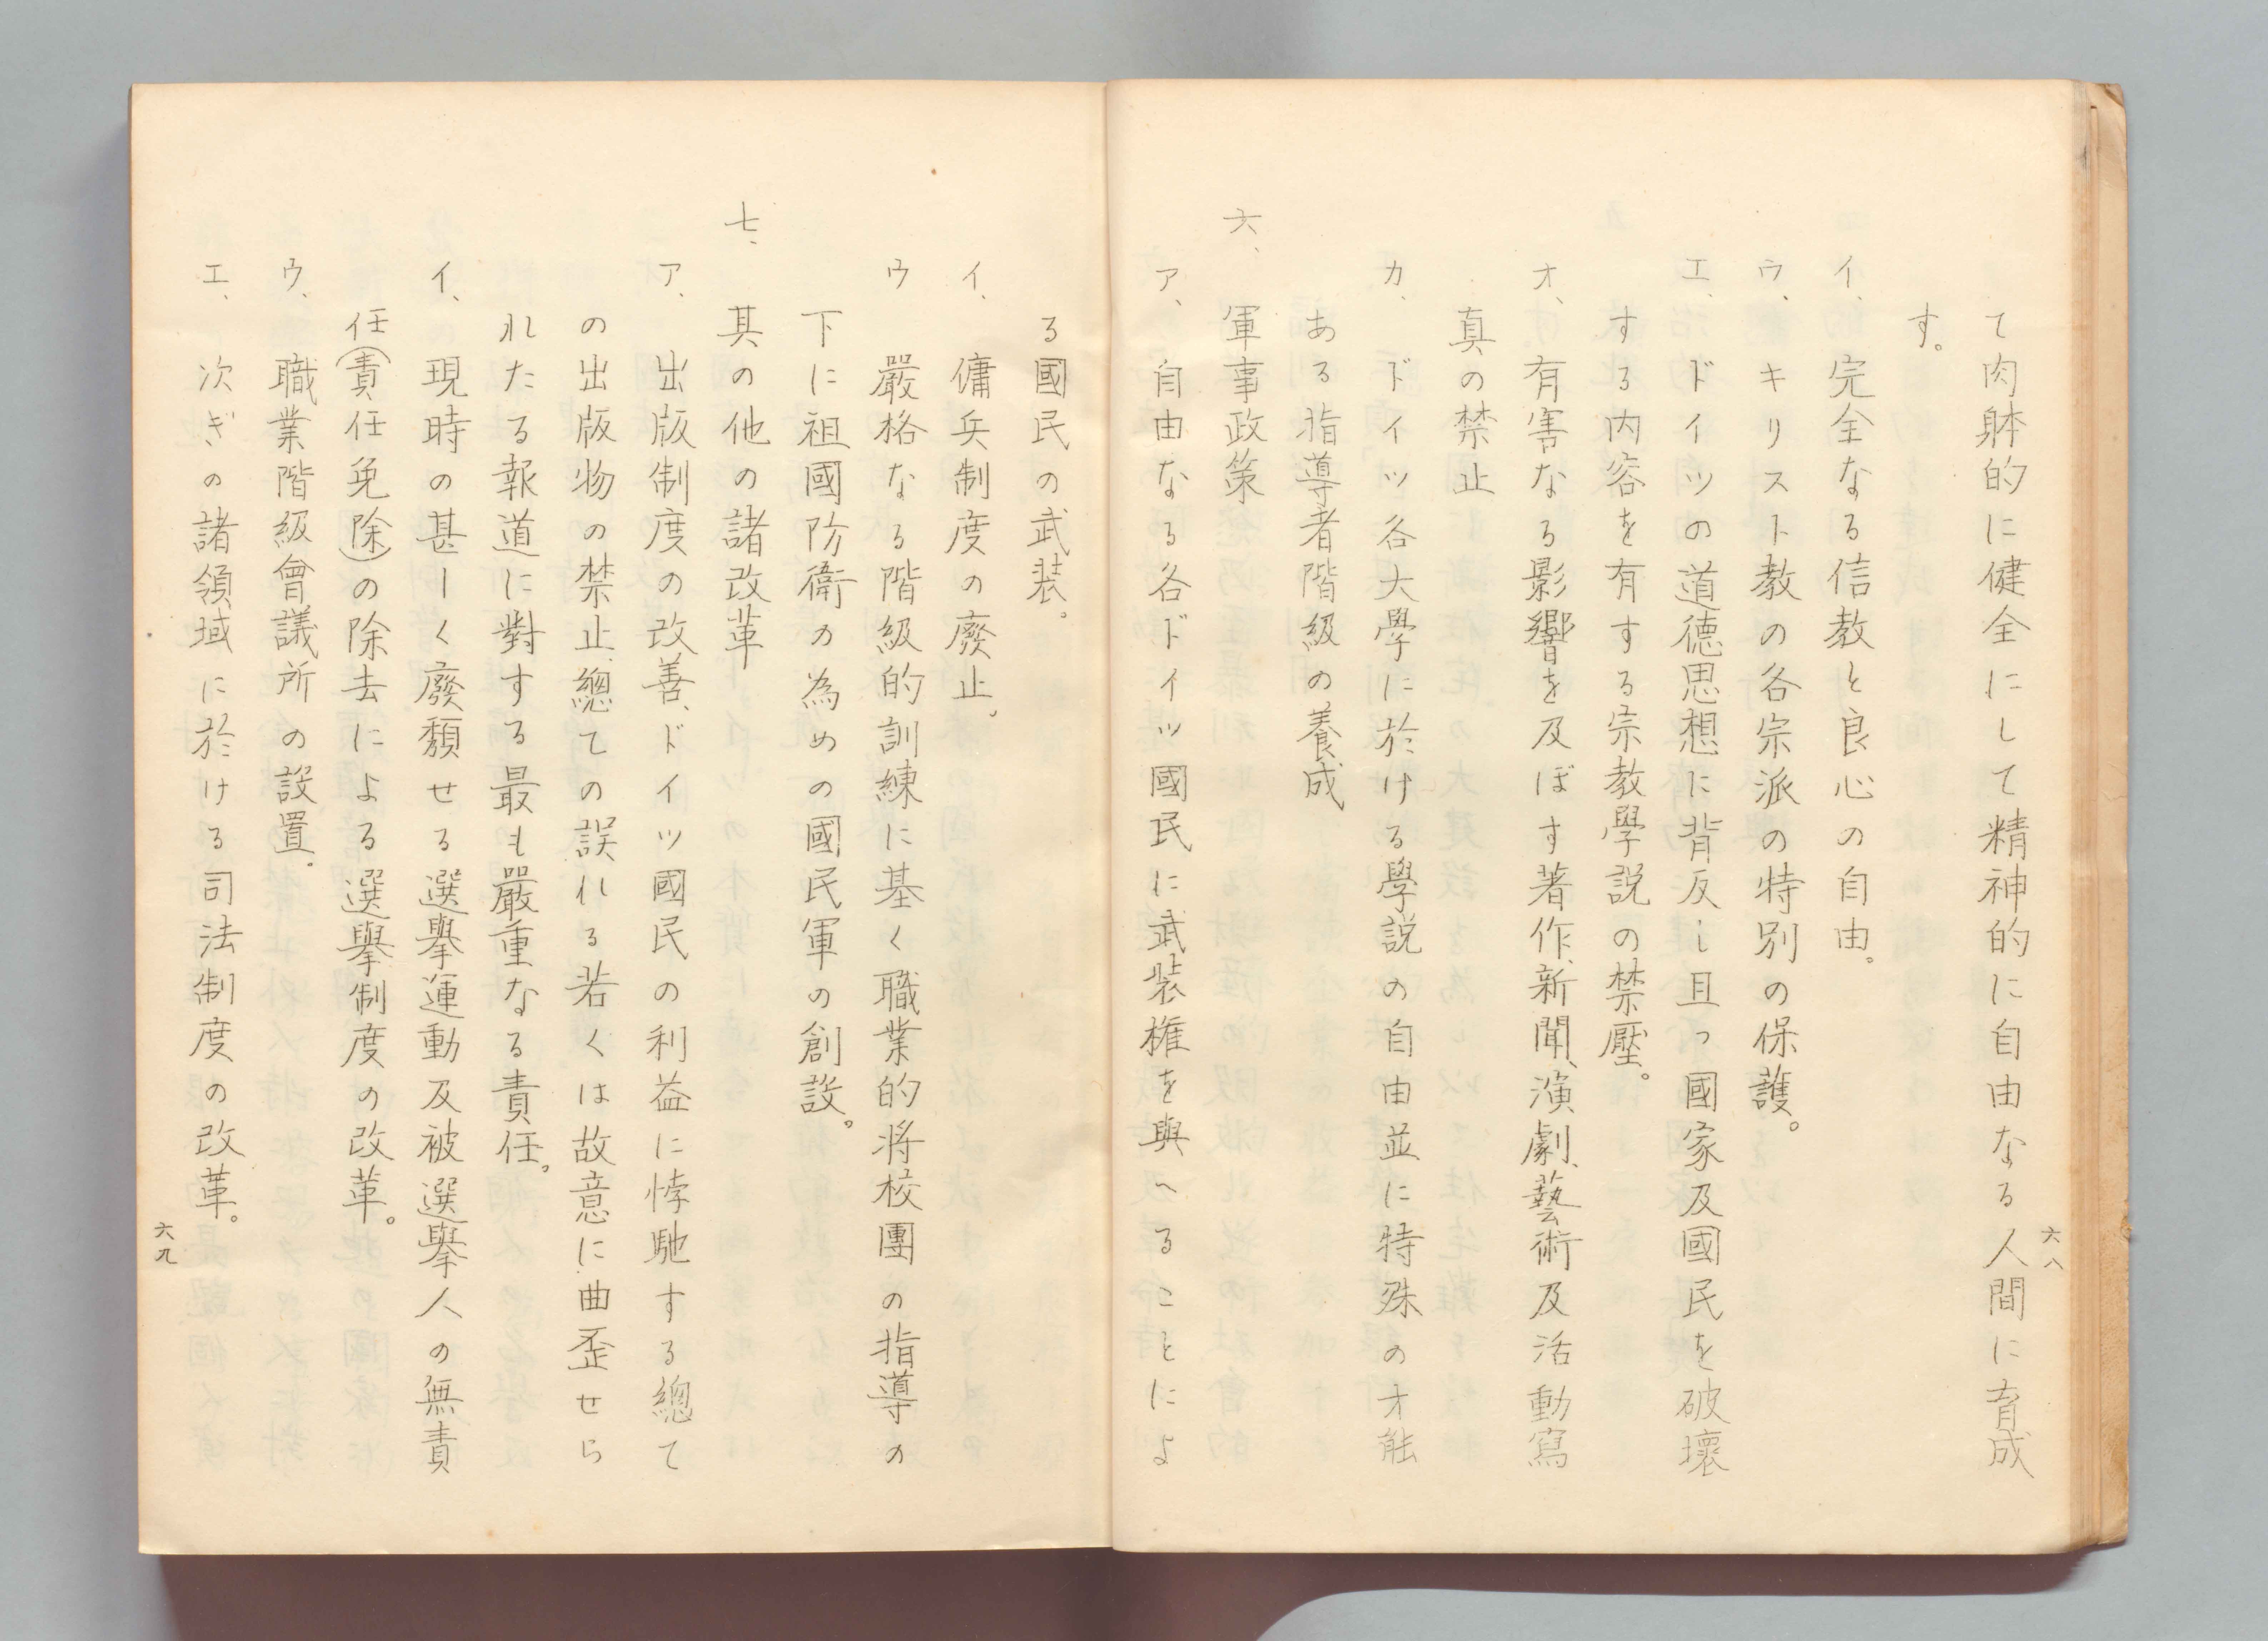 て肉躰的に健全にして精神的に自由なる人間に育成
す。
イ、完全なる信教と良心の自由。
ウ、キリスト教の各宗派の特別の保護。
エ、ドイツの道徳思想に背反し且つ國家及國民を破壞
する内容を有する宗教學説の禁壓。
オ、有害なる影響を及ぼす著作、新聞、演劇、藝術及活動寫
真の禁止
カ、ドイツ各大學に於ける學説の自由並に特殊の才能
ある指導者階級の養成
六、軍事政策
ア、自由なる各ドイツ國民に武装権を與へることによ
六八
る國民の武装。
イ、傭兵制度の廢止。
ウ嚴格なる階級的訓練に基く職業的将校團の指導の
下に祖國防衛の為めの國民軍の創設。
七、其の他の諸改革
ア、出版制度の改善、ドイツ國民の利益に悖馳する總て
の出版物の禁止、總ての誤れる若くは故意に曲歪せら
れたる報道に對する最も嚴重なる責任。
イ、現時の甚しく廢頽せる選擧運動及被選擧人の無責
任(責任免除)の除去による選擧制度の改革。
ウ、職業階級會議所の設置。
エ、次ぎの諸領域に於ける司法制度の改革。
六九